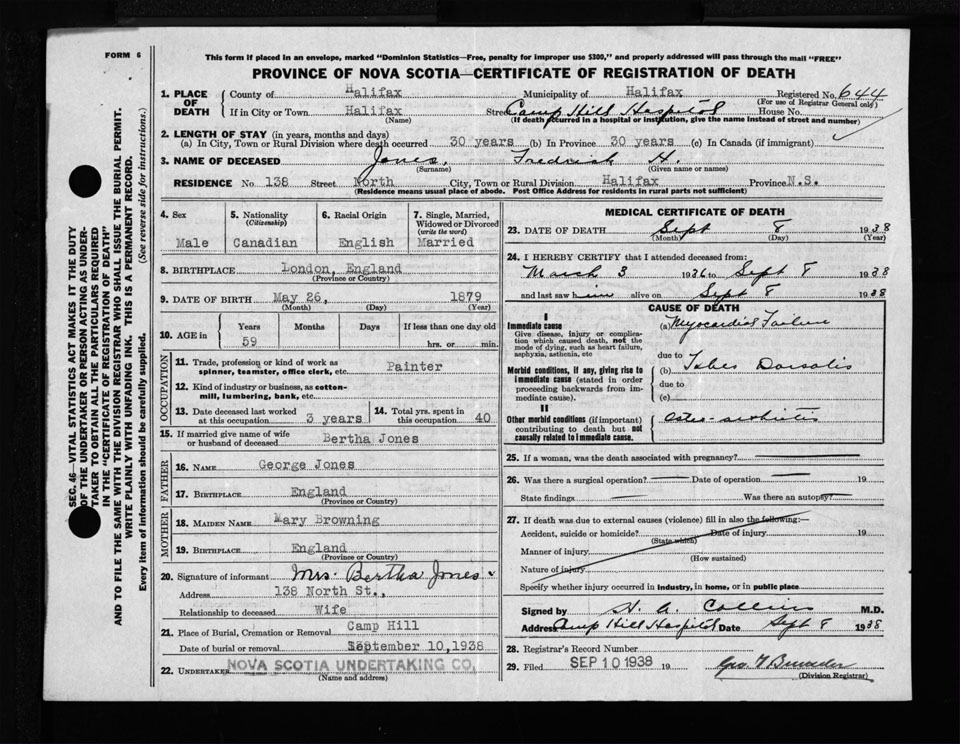 FORM 6
This form if placed in an envelope, marked "Dominion Statistics—Free, penalty for improper use $300," and properly addressed will pass through the mail "FREE"
PROVINCE OF NOVA SCOTIA—CERTIFICATE OF REGISTRATION OF DEATH
1. PLACE OF DEATH
County of Halifax Municipality of Halifax Registered No. 644
(For use of Registrar General only)
If in City or Town Halifax Street Camp Hill Hospital House No.
(Name) (If death occurred in a hospital or institution, give the name instead of street and number)
2. LENGTH OF STAY (in years, months and days)
(a) In City, Town or Rural Division where death occurred 30 years (b) In Province 30 years (c) In Canada (if immigrant)
3. NAME OF DECEASED Jones, Fredrick H.
(Surname) (Given name or names)
RESIDENCE No 138 Street North City, Town or Rural Division Halifax Province N.S.
(Residence means usual place of abode. Post Office Address for residents in rural parts not sufficient)
4. Sex
Male
5. Nationality
(Citizenship)
Canadian
6. Racial Origin
English
7. Single, Married, Widowed or Divorced
(write the word)
Married
8. BIRTHPLACE London, England
(Province or Country)
9. DATE OF BIRTH May 26, 1879
(Month) (Day) (Year)
10. AGE in
Years Months Days If less than one day old
59 hrs. or min.
OCCUPATION
11. Trade, profession or kind of work as spinner, teamster, office clerk, etc. Painter
12. Kind of industry or business, as cotton-mill, lumbering, bank, etc.
13. Date deceased last worked at this occupation 3 years
14. Total yrs. spent in this occupation 40
15. If married give name of wife or husband of deceased Bertha Jones
FATHER
16. NAME George Jones
17. BIRTHPLACE England
(Province or Country)
MOTHER
18. MAIDEN NAME Mary Browning
19. BIRTHPLACE England
(Province or Country)
20. Signature of informant Mrs. Bertha Jones
Address 138 North St.,
Relationship to deceased Wife
21. Place of Burial, Cremation or Removal Camp Hill
Date of burial or removal September 10, 1938
22. UNDERTAKER NOVA SCOTIA UNDERTAKING CO,
(Name and address)
MEDICAL CERTIFICATE OF DEATH
23. DATE OF DEATH Sept 8 1938
(Month) (Day) (Year)
24. I HEREBY CERTIFY that I attended deceased from:
March 3 1936 to Sept 8 1938
and last saw him alive on Sept 8 1938
CAUSE OF DEATH
I
Immediate cause
Give disease, injury or complication which caused death, not the mode of dying, such as heart failure, asphyxia, asthenia, etc
(a) Myocardial Failure
due to
Morbid conditions, if any, giving rise to immediate cause (stated in order proceeding backwards from immediate cause).
(b) Tabes Dorsalis
due to
(c)
II
Other morbid conditions (if important) contributing to death but not causally related to immediate cause.
Osteo-arthritis
25. If a woman, was the death associated with pregnancy?
26. Was there a surgical operation? Date of operation 19
State findings Was there an autopsy?
27. If death was due to external causes (violence) fill in also the following:—
Accident, suicide or homicide? Date of injury 19
(State which)
Manner of injury
(How sustained)
Nature of injury
Specify whether injury occurred in industry, in home, or in public place
Signed by H. A. Collins M.D.
Address Camp Hill Hospital Date Sept 8 1938
28. Registrar's Record Number
29. Filed SEP 10 1938 19
(Division Registrar)
SEC. 46—VITAL STATISTICS ACT MAKES IT THE DUTY
OF THE UNDERTAKER OR PERSON ACTING AS UNDER-
TAKER TO OBTAIN ALL THE PARTICULARS REQUIRED
IN THE "CERTIFICATE OF REGISTRATION OF DEATH"
AND TO FILE THE SAME WITH THE DIVISION REGISTRAR WHO SHALL ISSUE THE BURIAL PERMIT.
WRITE PLAINLY WITH UNFADING INK. THIS IS A PERMANENT RECORD.
Every item of information should be carefully supplied. (See reverse side for instructions.)